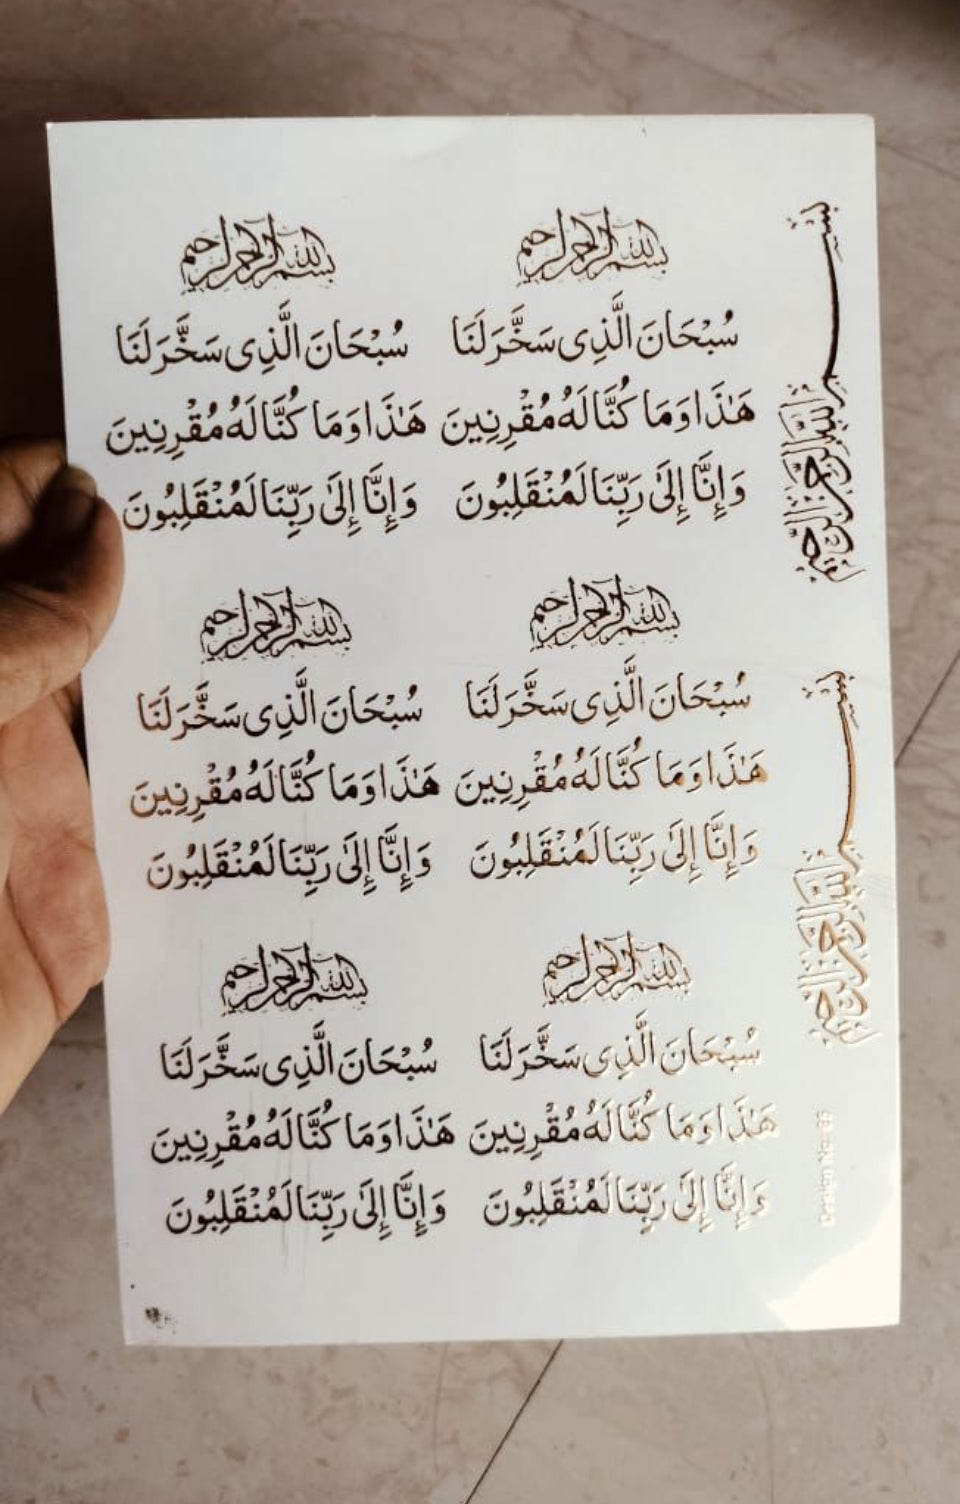 بسم الله الرحمن الرحيم
سُبْحَانَ الَّذِى سَخَّرَ لَنَا
هَٰذَا وَمَا كُنَّا لَهُ مُقْرِنِينَ
وَإِنَّا إِلَىٰ رَبِّنَا لَمُنْقَلِبُونَ
بسم الله الرحمن الرحيم
سُبْحَانَ الَّذِى سَخَّرَ لَنَا
هَٰذَا وَمَا كُنَّا لَهُ مُقْرِنِينَ
وَإِنَّا إِلَىٰ رَبِّنَا لَمُنْقَلِبُونَ
بسم الله الرحمن الرحيم
سُبْحَانَ الَّذِى سَخَّرَ لَنَا
هَٰذَا وَمَا كُنَّا لَهُ مُقْرِنِينَ
وَإِنَّا إِلَىٰ رَبِّنَا لَمُنْقَلِبُونَ
بسم الله الرحمن الرحيم
سُبْحَانَ الَّذِى سَخَّرَ لَنَا
هَٰذَا وَمَا كُنَّا لَهُ مُقْرِنِينَ
وَإِنَّا إِلَىٰ رَبِّنَا لَمُنْقَلِبُونَ
بسم الله الرحمن الرحيم
سُبْحَانَ الَّذِى سَخَّرَ لَنَا
هَٰذَا وَمَا كُنَّا لَهُ مُقْرِنِينَ
وَإِنَّا إِلَىٰ رَبِّنَا لَمُنْقَلِبُونَ
بسم الله الرحمن الرحيم
سُبْحَانَ الَّذِى سَخَّرَ لَنَا
هَٰذَا وَمَا كُنَّا لَهُ مُقْرِنِينَ
وَإِنَّا إِلَىٰ رَبِّنَا لَمُنْقَلِبُونَ
بسم الله الرحمن الرحيم
بسم الله الرحمن الرحيم
Design No.